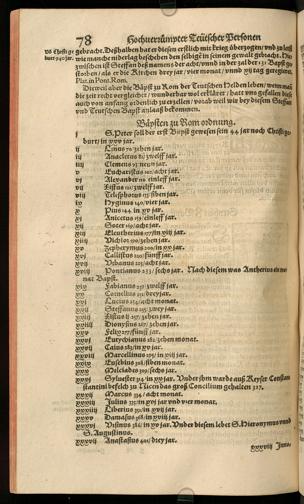 78 Hochverrümpter Teütscher Personen
gebracht. Deßhalben hat er diesen erstlich mit krieg überzogen/ vnd zu letst
wie manche niderlag bescheben den selbigē in seinem gewalt gebracht. Die
zwischen ist Steffan deß namens der acht/ vnnd in der zal der 131 Bapst ge
storben/ als er die Kirchen drey jar/ vier monat/ vnnd xij tag geregiert.
Plat. in Pont. Rom.
Dieweil aber die Bäpst zu Rom der Teutschen Helden leben/ wenn man
die zeit recht vergleichet/ wunderbar wol erkläret/ hatt vns gefallen diese
auch von anfang ordenlich zu erzellen/ vorab weil wir bey diesem Steffan
vnd Teutschen Bapst anlaaß bekommen.
Bäpsten zu Rom ordnung.
j S. Peter soll der erst Bapst gewesen sein 44 jar noch Christi ge
burt/ in xxv jar.
ij Linus zehen jar.
iij Anacletus zwelff jar.
iiij Clemens neün jar.
v Eucharistus acht jar.
vj Alexander einleff jar.
vij Sixtus zwelff jar.
viij Telesphorus einleff jar.
ix Hyginus 140/ vier jar.
x Pius 144 in xv jar.
xj Anicetus einleff jar.
xij Soter acht jar.
xiij Eleutherius in xiij jar.
xiiij Victor zehen jar.
xv Zepherymus in xx jar.
xvj Callistus fünff jar.
xvij Vrbanus acht jar.
xviij Pontianus 233/ sechs jar. Nach diesem was Antherius ein mo
nat Bapst.
xix Fabianus zwelff jar.
xx Cornelius drey jar.
xxj Lucius acht monat.
xxij Steffanus zwey jar.
xxiij Sixtus ij zehen jar.
xxiiij Dionysius zehen jar.
xxv Felix fünff jar.
xxvj Eurychianus zehen monat.
xxvij Caius in xv jar.
xxviij Marcellinus in viij jar.
xxix Eusebius siben monat.
xxx Melciades sechs jar.
xxxj Syluester in xx jar. Vnder ihm wardt auß Keyser Constan
stantini befelch zu Niceen das groß Concilium gehalten 327.
xxxij Marcus acht monat.
xxxiij Julius in xvj jar vnd vier monat.
xxxiiij Liberius in xv jar.
xxxv Damasus in xviij jar.
xxxvj Vrsinus in xv jar. Vnder diesem lebet S. Hieronymus vnnd
S. Augustinus.
xxxvij Anastasius 400/ drey jar.
xxxviij Inno,